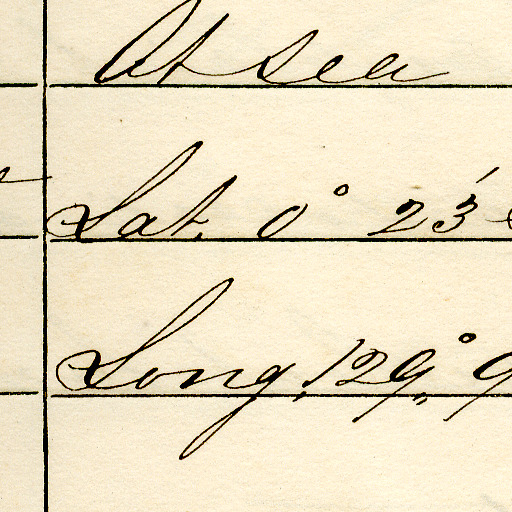 At sea
Lat. 0° 23'
Long, 129,° 9